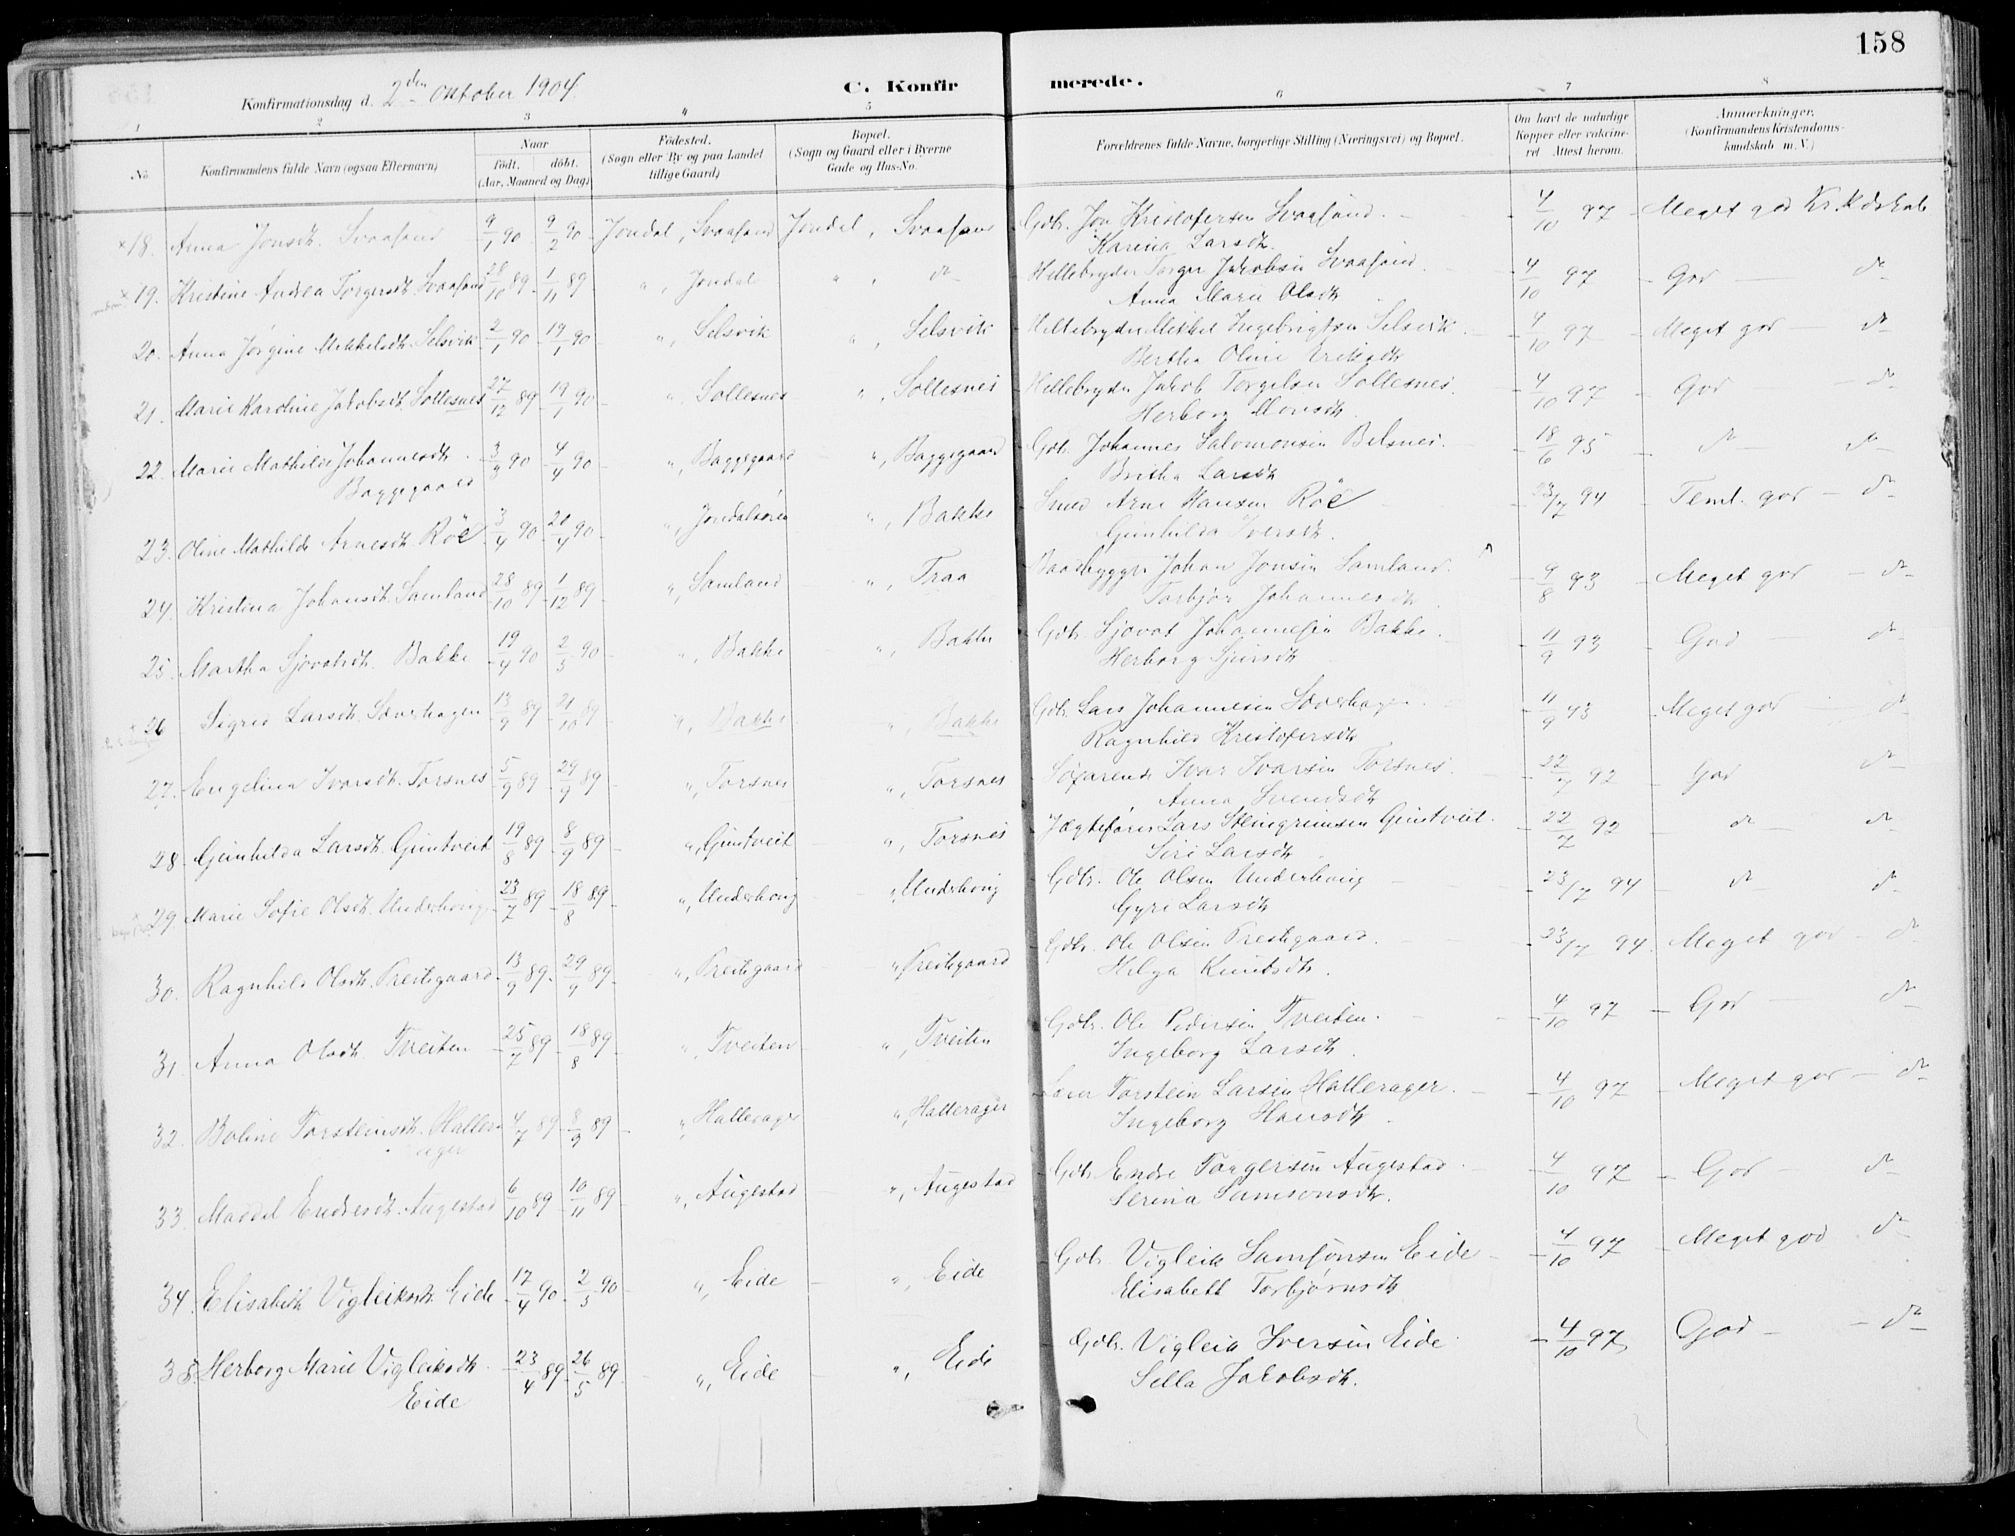 158
Konfirmationsdag d. 2den Oktober 1904.
C. Konfirmerede.
1 2 3 4 5 6 7 8
No. Konfirmandens fulde Navn (ogsaa Efternavn)
Naar født. døbt. (Aar, Maaned og Dag)
Fødested. (Sogn eller By og paa Landet tillige Gaard)
Bopæl. (Sogn og Gaard eller i Byerne Gade og Hus-No.
Forældrenes fulde Navne, borgerlige Stilling (Næringsvei) og Bopæl.
Om havt de naturlige Kopper eller vakcineret. Attest herom.
Anmærkninger. (Konfirmandens Kristendomskundskab m. V.)
×18. Anna Jonsdtr. Svaasand 9/1 90 9/2 90 Jondal, Svaasand Jondal, Svaasand Gdbr. Jon Kristofersen Svaasand. 4/10 97 Meget god Kr.kdskab
Karina Larsdtr.
×19. Kristine Andrea Torgersdtr. Svaasand 28/10 89 1/11 89 ", Jondal ", do Hellebryder Torger Jakobsen Svaasand. 4/10 97 God do
Anna Marie Olsdtr.
20. Anna Jørgine Mikkelsdtr. Selsvik 2/1 90 19/1 90 ", Selsvik ", Selsvik Hellebryder Mikkel Ingebrigtsen Selsvik. 4/10 97 Meget god do
Bertha Oline Eriksdtr.
21. Marie Karoline Jakobsdtr. Sollesnes 27/12 89 19/1 90 ", Sollesnes ", Sollesnes Hellebryder Jakob Torgilsen Sollesnes. 4/10 97 God do
Herborg Monsdtr.
22. Marie Mathilde Johannesdtr. 3/3 90 4/4 90 ", Baggegaard ", Baggegaard Gdbr. Johannes Salomonsen Belsnes. 18/6 95 do do
Baggegaard Britha Larsdtr.
23. Oline Mathilde Arnesdtr. Røe 3/4 90 20/4 90 ", Jondalsøren ", Bakke Smed Arne Hansen Røe 23/7 94 Teml. god do
Gunhilda Iversdtr.
24. Kristina Johansdtr. Samland 28/10 89 1/12 89 ", Samland ", Traa Baadbygger Johan Jonsen Samland. 9/8 93 Meget god do
Torbjør Johannesdtr.
25. Martha Sjovatsdtr. Bakke 19/4 90 2/5 90 ", Bakke ", Bakke Gdbr. Sjovat Johannesen Bakke. 11/9 93 God do
Herborg Sjursdtr.
×26 Sigrid Larsdtr. Sæverhagen 13/9 89 21/10 89 ", Bakke ", Bakke Gdbr. Lars Johannesen Sæverhagen. 11/9 93 Meget god do
Ragnhild Kristofersdtr.
27. Engelina Ivarsdtr. Torsnes 5/9 89 29/9 89 ", Torsnes ", Torsnes Søfarende Ivar Ivarsen Torsnes. 22/7 92 God do
Anna Svendsdtr.
28. Gunhilda Larsdtr. Guntveit 19/8 89 8/9 89 ", Guntveit ", Torsnes Jægtefører Lars Steingrimsen Guntveit. 22/7 92 do do
Siri Larsdtr.
×29. Marie Sofie Olsdtr. Underhoug 23/7 89 18/8 89 ", Underhoug ", Underhoug Gdbr. Ole Olsen Underhoug 23/7 94 do do
Gyri Larsdtr.
30. Ragnhild Olsdtr. Prestegaard 13/9 89 29/9 89 ", Prestegaard ", Prestegaard Gdbr. Ole Olsen Prestegaard. 23/7 94. Meget god do
Helga Knutsdtr.
31. Anna Olsdtr. Tveiten 25/7 89 18/8 89 ", Tveiten ", Tveiten Gdbr. Ole Pedersen Tveiten. 4/10 97 God do
Ingeborg Larsdtr.
32. Boline Torsteinsdtr. Haller- 4/7 89 8/9 89 ", Hallerager ", Hallerager Torstein Larsen Hallerager. 4/10 97 Meget god do
ager Ingeborg Hansdtr.
33. Maddel Endresdtr. Augestad 6/10 89 10/11 89 ", Augestad ", Augestad Gdbr. Endre Torgersen Augestad. 4/10 97 God do
Serina Samsonsdtr.
34. Elisabeth Vigleiksdtr. Eide 17/4 90 2/5 90 ", Eide ", Eide Gdbr. Vigleik Samsonsen Eide 4/10 97 Meget god do
Elisabeth Torbjørnsdtr.
35. Herborg Marie Vigleiksdtr. 23/4 89 26/5 89 ", Eide ", Eide Gdbr. Vigleik Iversen Eide 4/10 97 God do
Eide Sella Jakobsdtr.